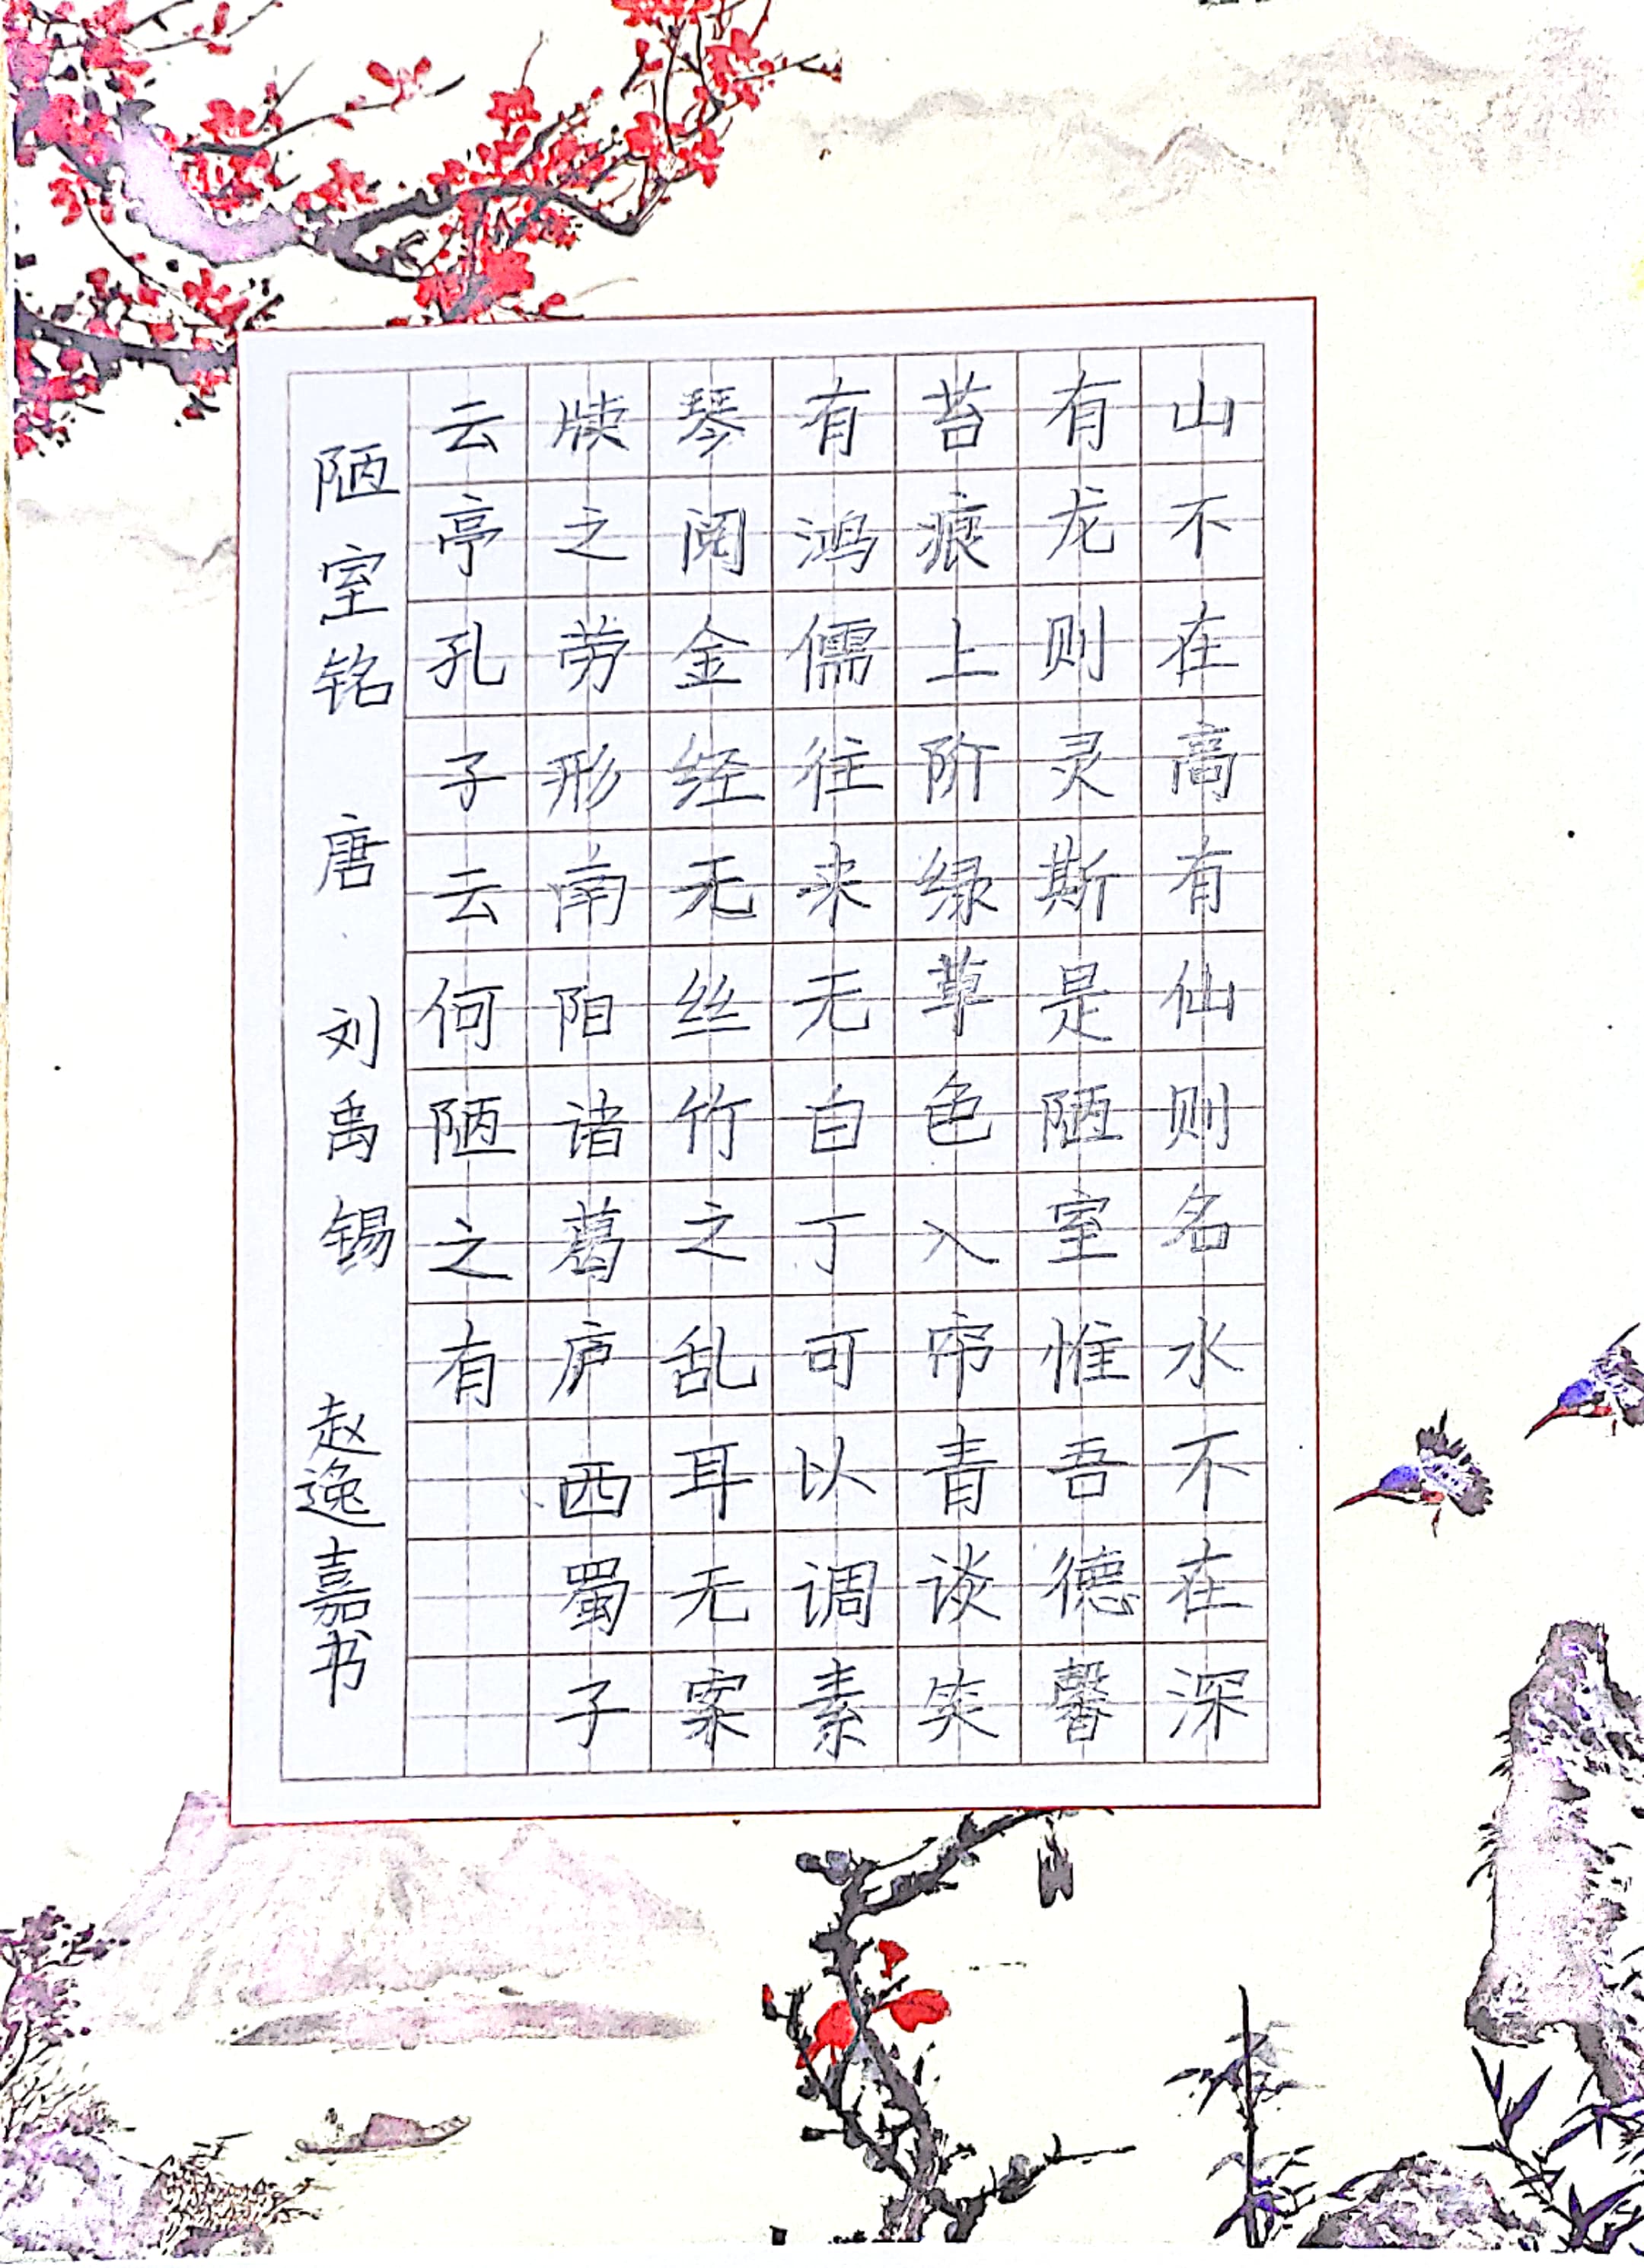 山不在高有仙则名水不在深
有龙则灵斯是陋室惟吾德馨
苔痕上阶绿草色入帘青谈笑
有鸿儒往来无白丁可以调素
琴阅金经无丝竹之乱耳无案
牍之劳形南阳诸葛庐西蜀子
云亭孔子云何陋之有
陋室铭 唐 刘禹锡 赵逸嘉书